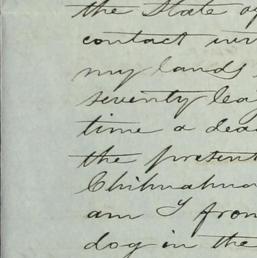 the State of
contact
my lands
seventy
time a
the present
Chihuahua
am I from
dog in the